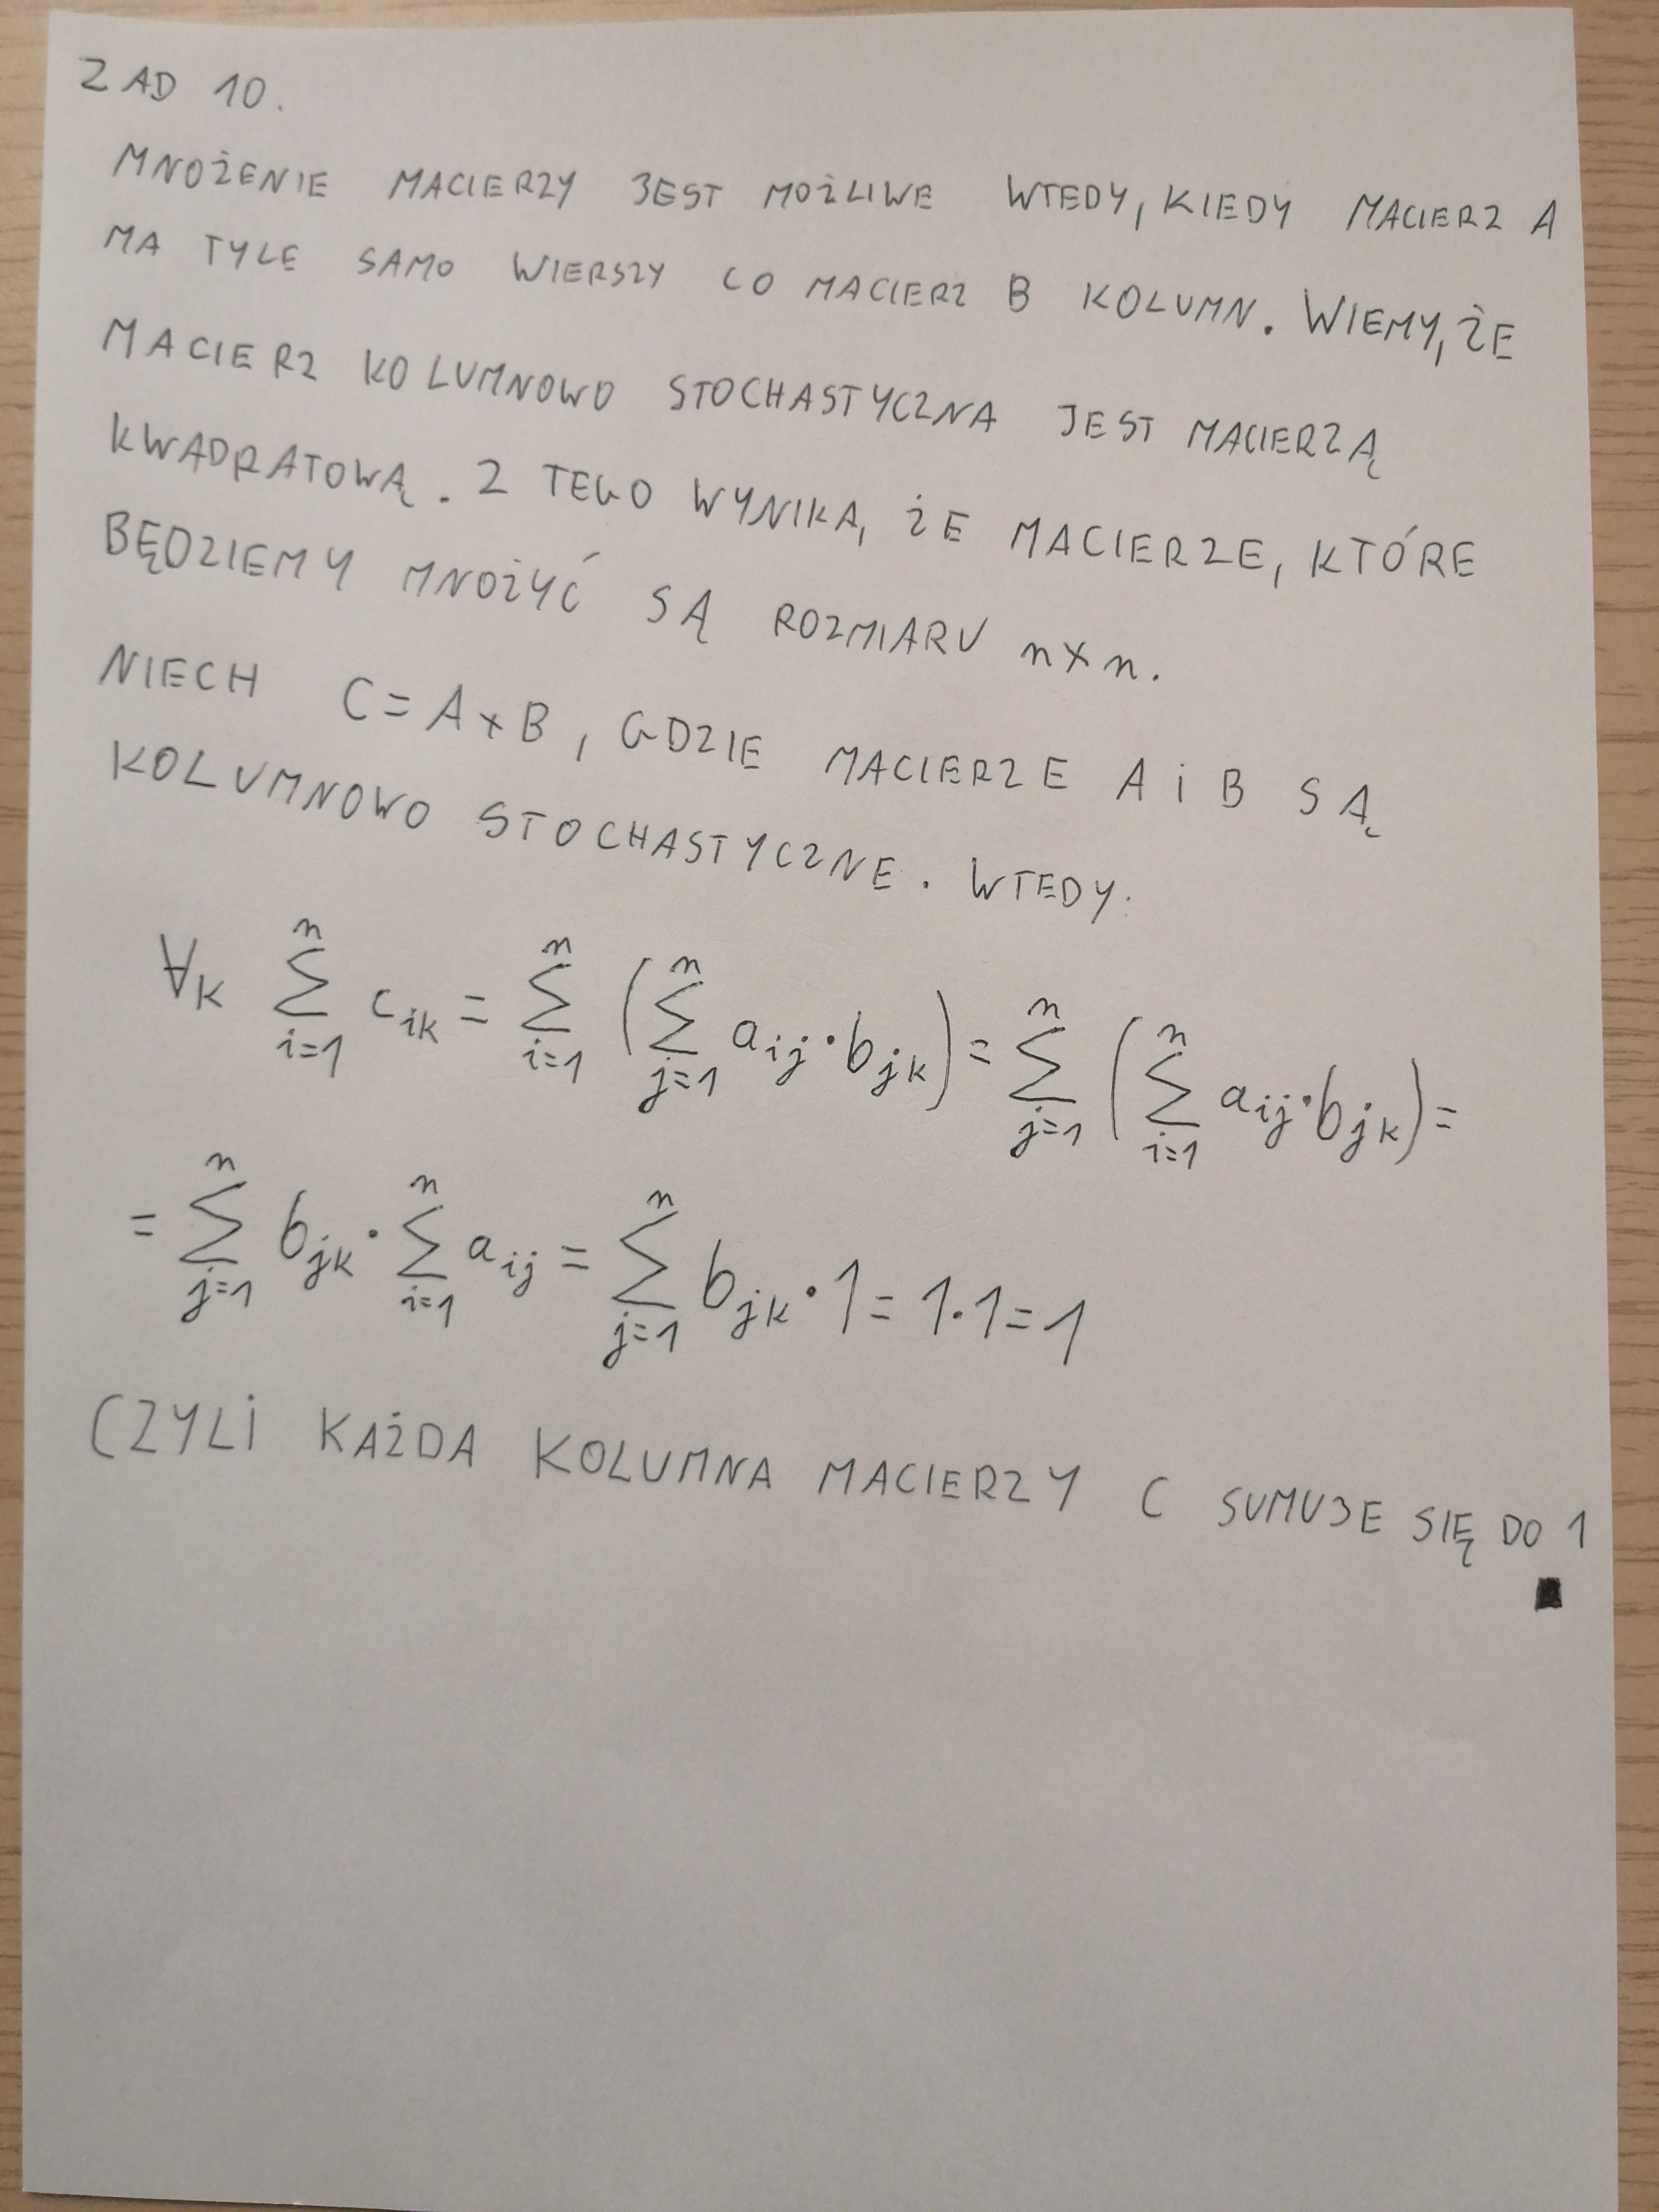 ZAD 10.
MNOŻENIE MACIERZY JEST MOŻLIWE WTEDY, KIEDY MACIERZ A
MA TYLE SAMO WIERSZY CO MACIERZ B KOLUMN. WIEMY, ŻE
MACIERZ KOLUMNOWO STOCHASTYCZNA JEST MACIERZĄ
KWADRATOWĄ. Z TEGO WYNIKA, ŻE MACIERZE, KTÓRE
BĘDZIEMY MNOŻYĆ SĄ ROZMIARU n×n.
NIECH C = A × B, GDZIE MACIERZE A i B SĄ
KOLUMNOWO STOCHASTYCZNE. WTEDY.
∀k ∑_{i=1}^{n} c_{ik} = ∑_{i=1}^{n} (∑_{j=1}^{n} a_{ij} · b_{jk}) = ∑_{j=1}^{n} (∑_{i=1}^{n} a_{ij} · b_{jk}) =
= ∑_{j=1}^{n} b_{jk} · ∑_{i=1}^{n} a_{ij} = ∑_{j=1}^{n} b_{jk} · 1 = 1 · 1 = 1
CZYLI KAŻDA KOLUMNA MACIERZY C SUMUJE SIĘ DO 1
■